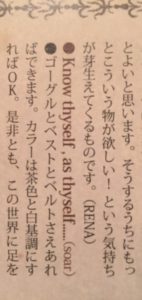 とよいと思います。そうするうちにもっ
とこういう物が欲しい！という気持ち
が芽生えてくるものです。（RENA）
●Know thyself , as thyself......(soar)
●ゴーグルとベストとベルトさえあれ
ばできます。カラーは茶色と白基調にす
ればOK。是非とも、この世界に足を